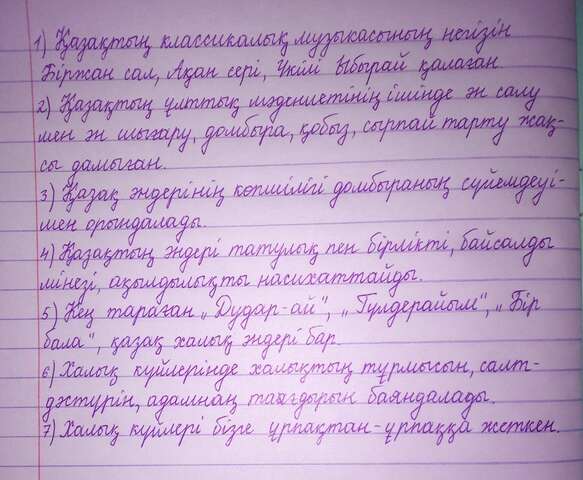 1) Қазақтың классикалық музыкасының негізін
Біржан сал, Ақан сері, Үкілі Ыбырай қалаған
2) Қазақтың ұлттық мәдениетінің ішінде ән салу
мен ән шығару, домбыра, қобыз, сырнай тарту жақ-
сы дамыған.
3) Қазақ әндерінің көпшілігі домбыраның сүйемдеуі-
мен орындалады.
4) Қазақтың әндері татулық пен бірлікті, байсалды
мінезі, ақылдылықты насихаттайды.
5) Кең тараған „Дудар-ай", „Гүлдерайым", „Бір
бала", қазақ халық әндері бар.
6) Халық күйлерінде халықтың тұрмысын, салт-
дәстүрін, адамның тағдырын баяндалады.
7) Халық күйлері бізге ұрпақтан-ұрпаққа жеткен.